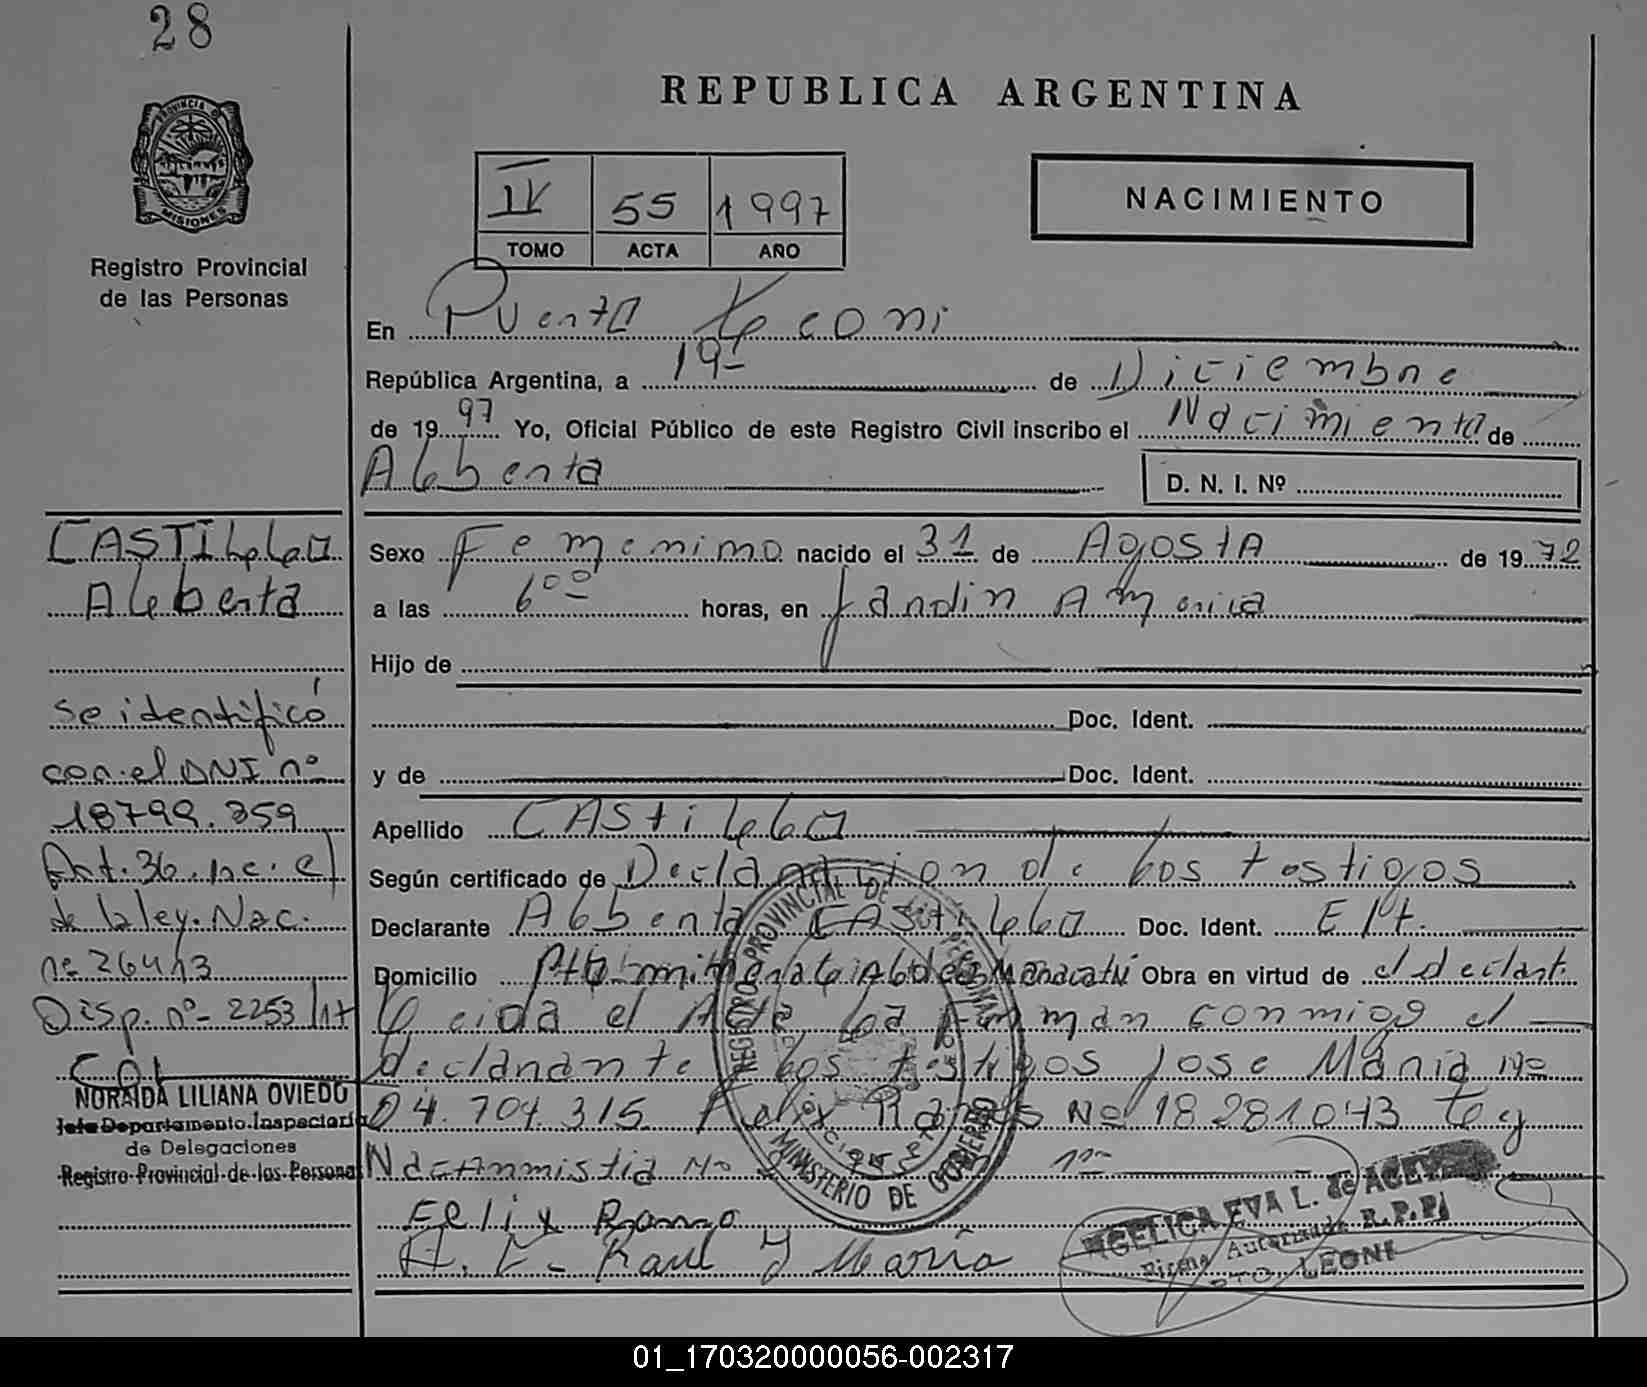 28
REPUBLICA ARGENTINA
PROVINCIA DE
MISIONES
Registro Provincial
de las Personas
IV 55 1997
TOMO ACTA AÑO
NACIMIENTO
En Puerto Leoni
República Argentina, a 19- de Diciembre
de 1997 Yo, Oficial Público de este Registro Civil inscribo el Nacimiento de
Alberta
D. N. I. Nº
CASTILLO
Alberta
Sexo Femenino nacido el 31 de Agosto de 1972
a las 6 00 horas, en Jardin America
Hijo de
Doc. Ident.
y de Doc. Ident.
Apellido CAStillo
Según certificado de Declaracion de los testigos
Declarante Alberta CAStillo Doc. Ident.
Domicilio Obra en virtud de el declart.
Leida el Acta la firman conmigo el
declarante los testigos Jose Maria Nº
04.704.315 Felix Ramos Nº 18281043 Ley
Nac Amnistia Nº
Felix Ramos
Raul J Maria
se identificó
con el DNI nº
18799.359
Art. 36. inc. c)
de la ley. Nac.
nº 26413
Disp. nº- 2253/17
NORAIDA LILIANA OVIEDO
Jefe Departamento Inspectoria
de Delegaciones
Registro Provincial de las Personas
REGISTRO PROVINCIAL DE LAS PERSONAS
MINISTERIO DE GOBIERNO
ANGELICA EVA L. de
Firma Autorizada R.P.P.
PTO. LEONI
01_170320000056-002317